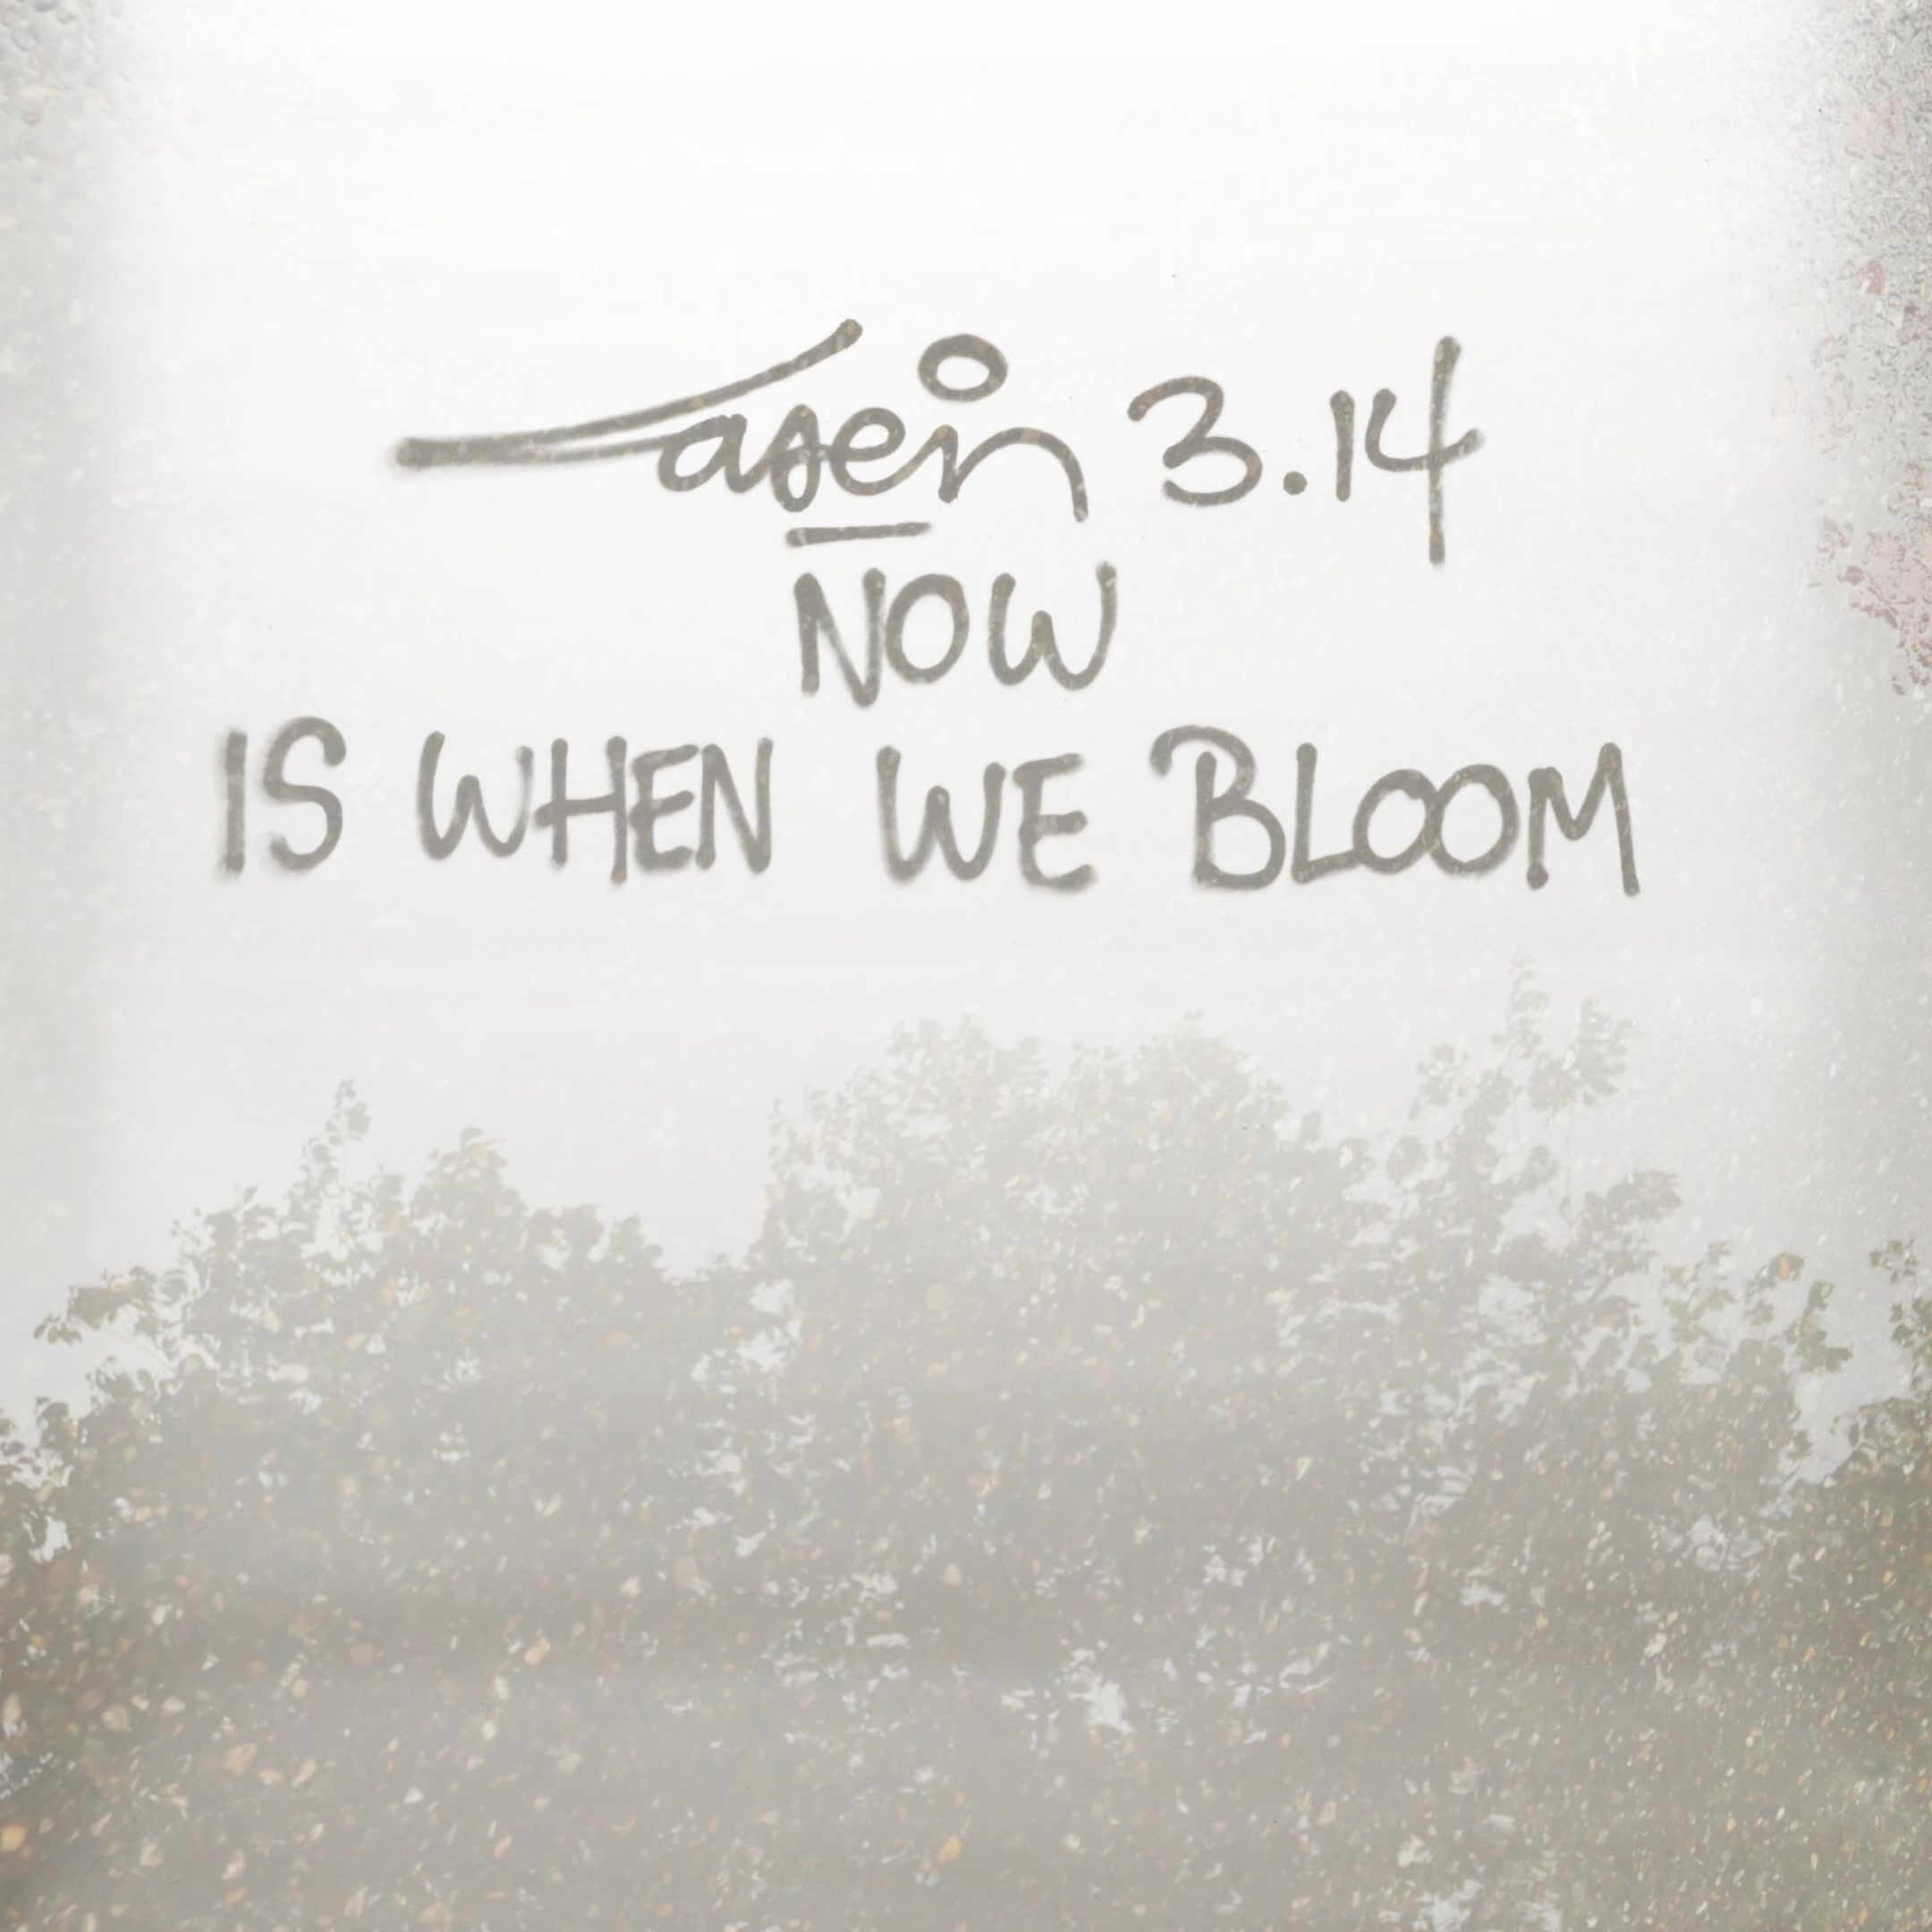 Laser 3.14
NOW
IS WHEN WE BLOOM